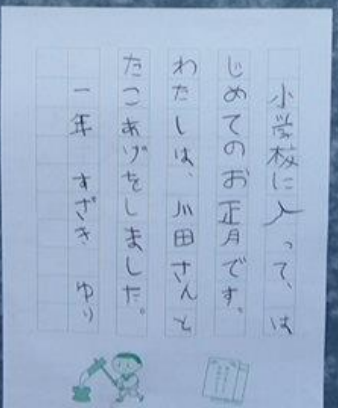 小学校に入って、は
じめてのお正月です。
わたしは、川田さんと
たこあげをしました。
一年 すざき ゆり